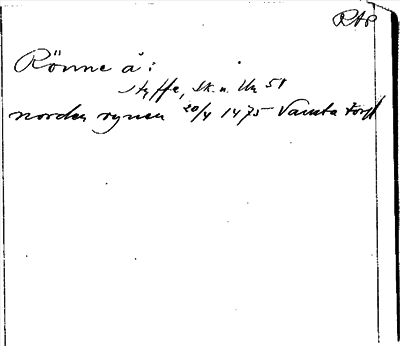 RAP
Rönne å:
Styffe, Sk. u. Un 58
norden rynen 20/4 1475 Vamta Torp